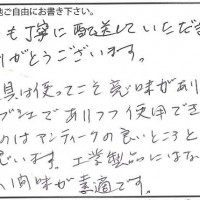 ご自由にお書き下さい。
も丁寧に配送していただき
りがとうございます。
具は使ってこそ意味があり
でありつつ使用でき
のはアンティークの良いところと
思います。工業製品にはな
い風味が素適です。